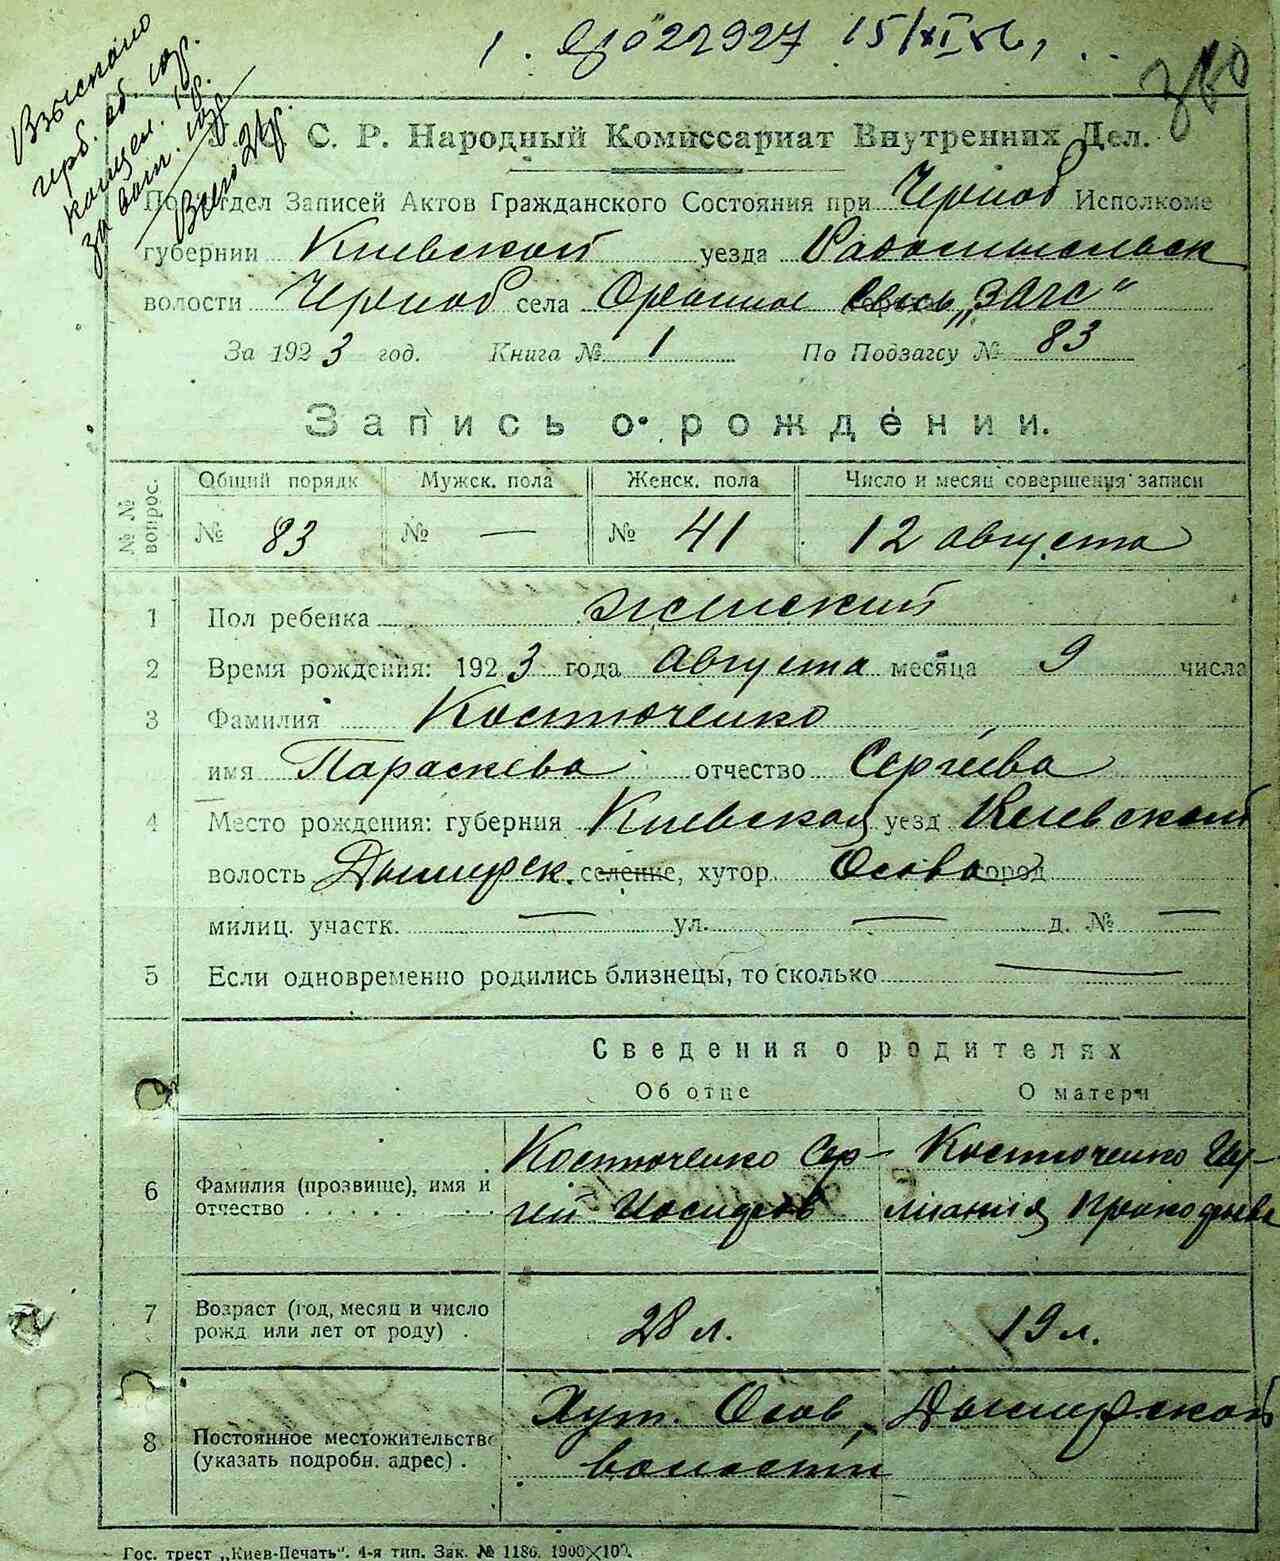 1. 022927 15/XI
360
Взыскано
герб. сб. 10р.
канцел. 1р.
за бланк. 10р.
Всего 21р.
С. Р. Народный Комиссариат Внутренних Дел.
Подотдел Записей Актов Гражданского Состояния при Черноб Исполкоме
губернии Киевской уезда Радомысльск
волости Черноб села Оранное „ЗАГС"
За 1923 год. Книга № 1 По Подзагсу № 83
Запись о рождении.
№№ вопрос. Общий порядк Мужск. пола Женск. пола Число и месяц совершения записи
№ 83 № — № 41 12 августа
1 Пол ребенка женский
2 Время рождения: 1923 года августа месяца 9 числа
3 Фамилия Костюченко
имя Параскева отчество Сергеева
4 Место рождения: губерния Киевская уезд Киевский
волость Дымирск. селение, хутор Осова город
милиц. участк. — ул. — д. № —
5 Если одновременно родились близнецы, то сколько —
Сведения о родителях
Об отце О матери
6 Фамилия (прозвище), имя и отчество . . . . . Костюченко Сер-
гей Иосифов
Костюченко
Прокофьева
7 Возраст (год, месяц и число
рожд или лет от роду) . 28 л. 19 л.
8 Постоянное местожительство
(указать подробн. адрес) . Хут. Осов, Дымирской
волости
Гос. трест „Киев-Печать". 4-я тип. Зак. № 1186. 1900×100.